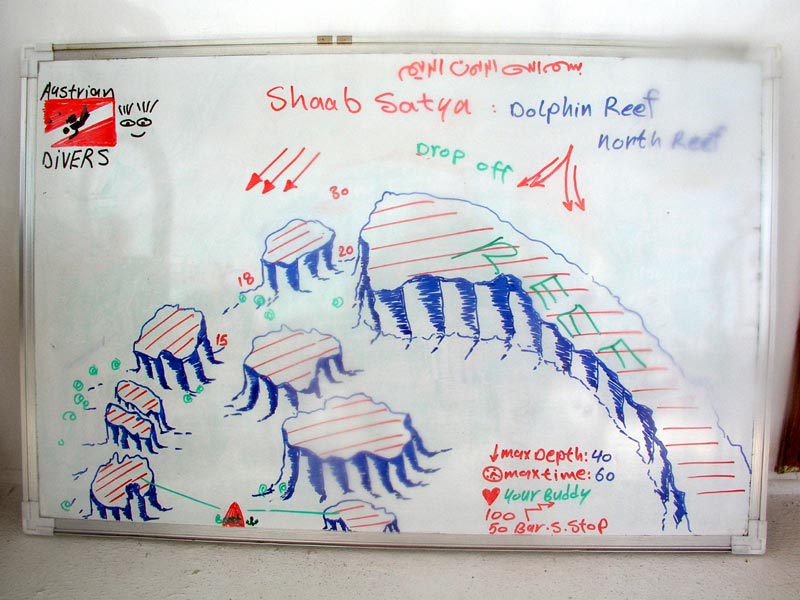 Austrian
DIVERS
Shaab Satya : Dolphin Reef
North Reef
Drop off
30
20
18
15
REEF
↓ max Depth: 40
max time: 60
♥ your Buddy
100
50 Bar. S. Stop